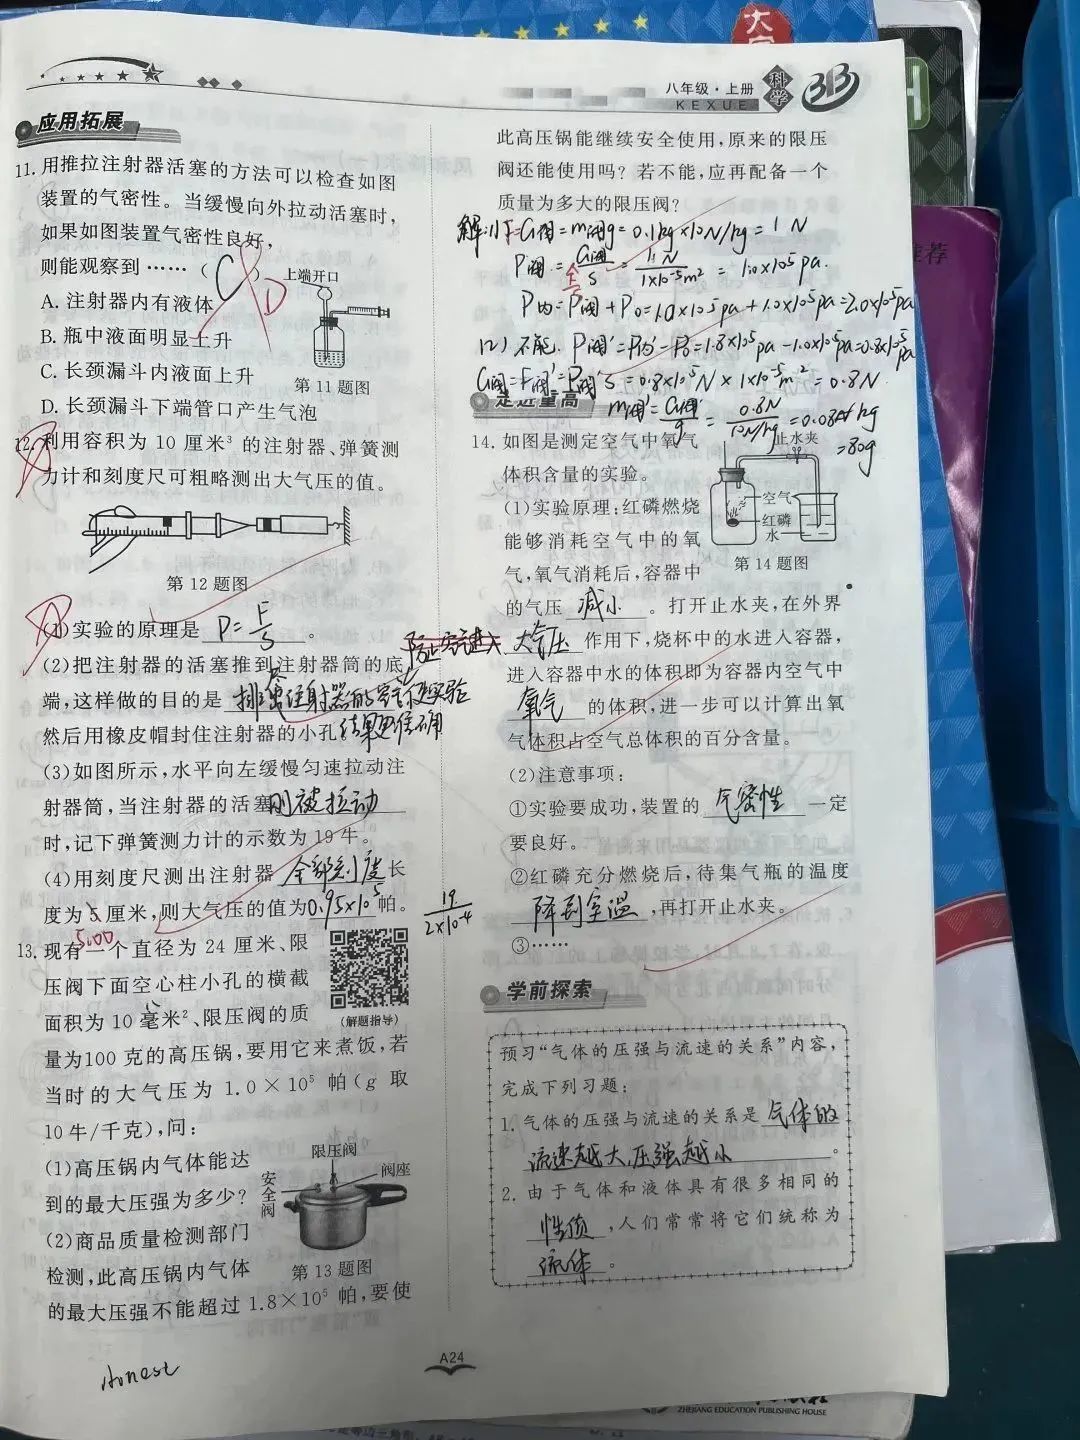 八年级·上册
KEXUE
科学
应用拓展
11. 用推拉注射器活塞的方法可以检查如图
装置的气密性。当缓慢向外拉动活塞时,
如果如图装置气密性良好,
则能观察到……( C ) D
A. 注射器内有液体
B. 瓶中液面明显上升
C. 长颈漏斗内液面上升
D. 长颈漏斗下端管口产生气泡
上端开口
第11题图
12. 利用容积为 10 厘米³ 的注射器、弹簧测
力计和刻度尺可粗略测出大气压的值。
第12题图
(1)实验的原理是 P=F/S 。
(2)把注射器的活塞推到注射器筒的底
端,这样做的目的是 排尽注射器的空气使实验
然后用橡皮帽封住注射器的小孔 结果更准确
(3)如图所示,水平向左缓慢匀速拉动注
射器筒,当注射器的活塞 刚被拉动
时,记下弹簧测力计的示数为 19 牛。
(4)用刻度尺测出注射器 全部刻度 长
度为 5 厘米,则大气压的值为 0.95×10⁵ 帕。
5.00
19/2×10⁻⁴
13. 现有一个直径为 24 厘米、限
压阀下面空心柱小孔的横截
面积为 10 毫米²、限压阀的质
量为100 克的高压锅,要用它来煮饭,若
当时的大气压为 1.0×10⁵ 帕(g 取
10 牛/千克),问:
(解题指导)
(1)高压锅内气体能达
到的最大压强为多少?
(2)商品质量检测部门
检测,此高压锅内气体
的最大压强不能超过 1.8×10⁵ 帕,要使
限压阀
安全阀
阀座
第13题图
此高压锅能继续安全使用,原来的限压
阀还能使用吗?若不能,应再配备一个
质量为多大的限压阀?
解:(1)F=G阀=m阀g=0.1kg×10N/kg=1N
P阀=G阀/S=1N/1×10⁻⁵m²=1.0×10⁵pa.
P内=P阀+P0=1.0×10⁵pa+1.0×10⁵pa=2.0×10⁵pa
(2)不能. P阀'=P内'-P0=1.8×10⁵pa-1.0×10⁵pa=0.8×10⁵pa
G阀'=F阀'=P阀'S=0.8×10⁵N×1×10⁻⁵m²=0.8N
m阀'=G阀'/g=0.8N/10N/kg=0.08kg
=80g
走进重高
14. 如图是测定空气中氧气
体积含量的实验。
(1)实验原理:红磷燃烧
能够消耗空气中的氧
气,氧气消耗后,容器中
止水夹
空气
红磷
水
第14题图
的气压 减小 。打开止水夹,在外界
大气压 作用下,烧杯中的水进入容器,
进入容器中水的体积即为容器内空气中
氧气 的体积,进一步可以计算出氧
气体积占空气总体积的百分含量。
(2)注意事项:
①实验要成功,装置的 气密性 一定
要良好。
②红磷充分燃烧后,待集气瓶的温度
降到室温 ,再打开止水夹。
③……
学前探索
预习“气体的压强与流速的关系”内容,
完成下列习题:
1. 气体的压强与流速的关系是 气体的
流速越大,压强越小 。
2. 由于气体和液体具有很多相同的
性质 ,人们常常将它们统称为
流体 。
A24
Honest
ZHEJIANG EDUCATION PUBLISHING HOUSE